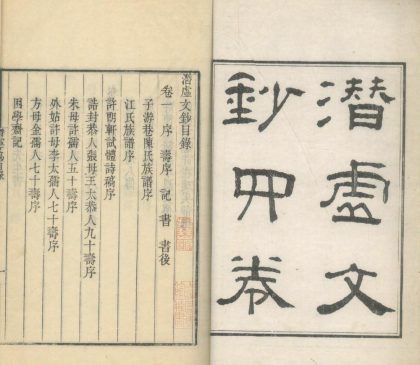 潛虛文
鈔四卷
潛虛文鈔目錄
卷一 序 壽序 記 書 書後
子游巷陳氏族譜序
江氏族譜序
許朗軒試體詩稿序
誥封恭人張母王太恭人九十壽序
朱母許孺人五十壽序
外姑許母李太孺人七十壽序
方母金孺人七十壽序
困學齋記